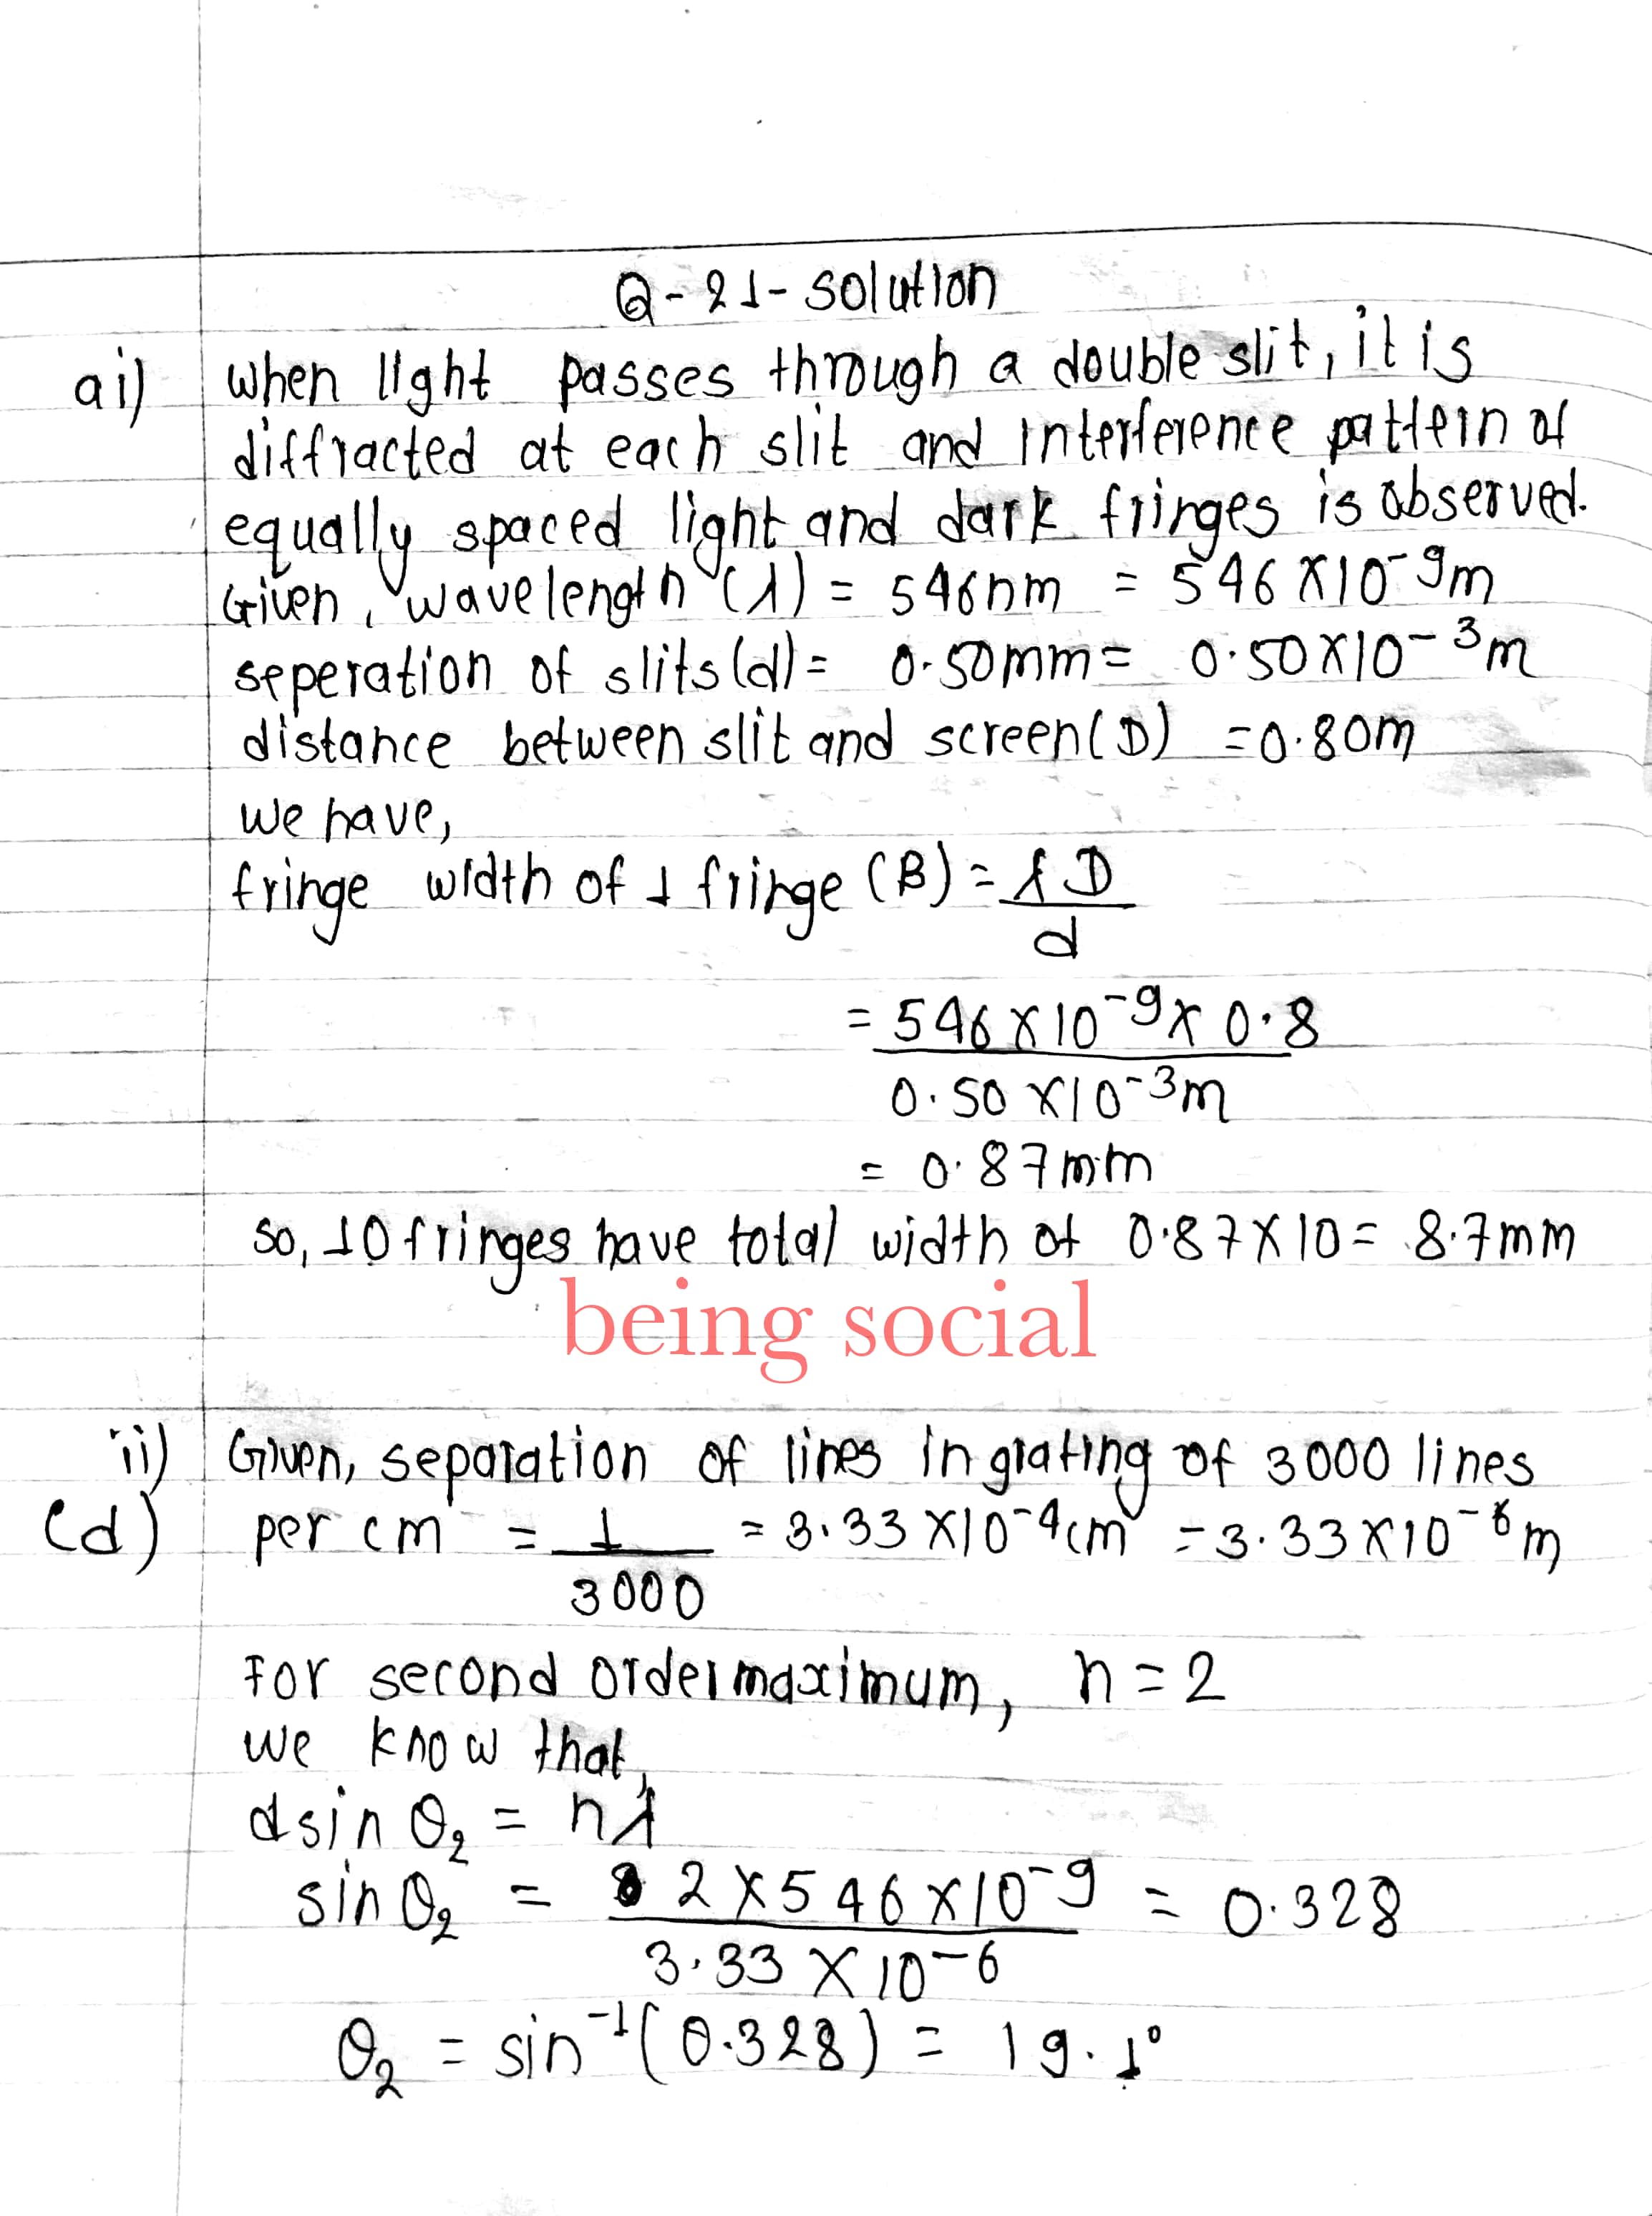 Q-21-solution
ai) when light passes through a double slit, it is
diffracted at each slit and interference pattern of
equally spaced light and dark fringes is observed.
Given, wavelength (λ) = 546nm = 546 X10-9m
seperation of slits(d) = 0.50mm = 0.50X10-3m
distance between slit and screen(D) =0.80m
we have,
fringe width of 1 fringe (B) = λD
d
= 546 x10-9x 0.8
0.50 X10-3m
= 0.87mm
so, 10 fringes have total width of 0.87X10= 8.7mm
being social
ii) Given, separation of lines in grating of 3000 lines
(d) per cm = 1 = 3.33 X10-4cm = 3.33X10-6m
3000
for second order maximum, n=2
we know that,
dsin θ2 = nλ
sin θ2 = 2X546x10-9 = 0.328
3.33 X10-6
θ2 = sin-1(0.328) = 19.1°